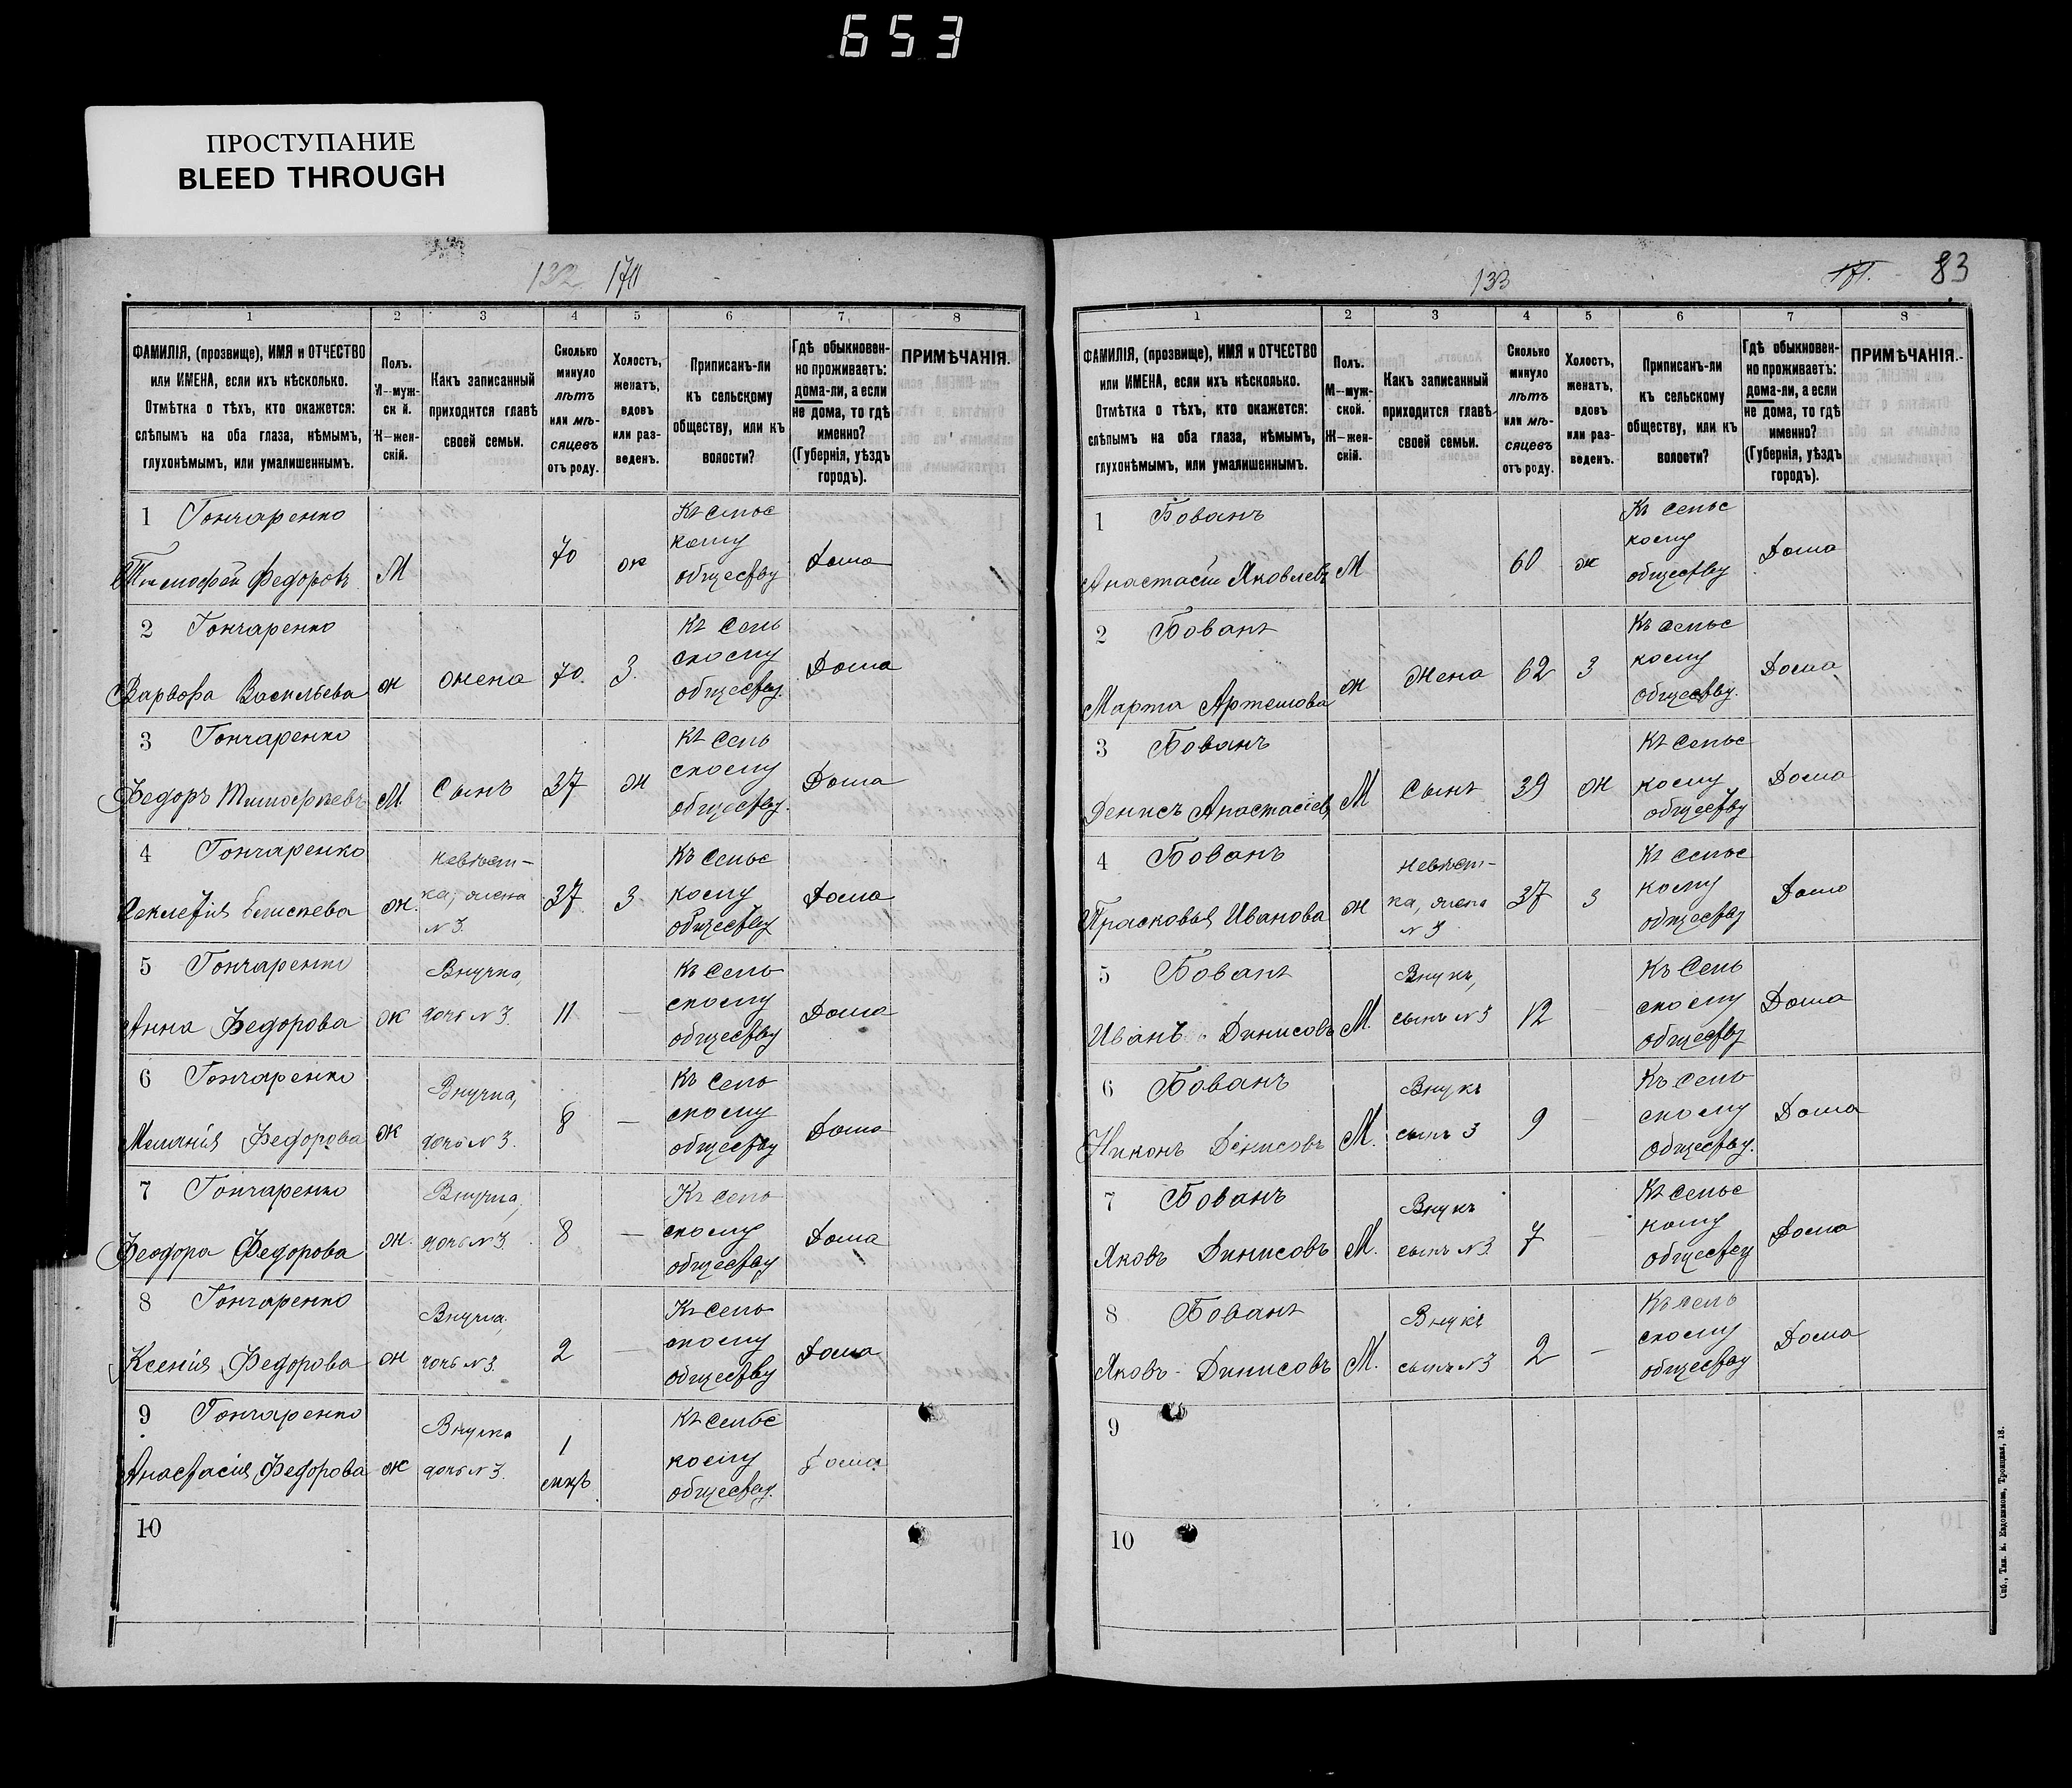 653
ПРОСТУПАНИЕ
BLEED THROUGH
132 170
1 2 3 4 5 6 7 8
ФАМИЛІЯ, (прозвище), ИМЯ и ОТЧЕСТВО
или ИМЕНА, если ихъ нѣсколько.
Отмѣтка о тѣхъ, кто окажется:
слѣпымъ на оба глаза, нѣмымъ,
глухонѣмымъ, или умалишеннымъ.
Полъ.
М—муж-
ской.
Ж—жен-
скій.
Какъ записанный
приходится главѣ
своей семьи.
Сколько
минуло
лѣтъ
или мѣ-
сяцевъ
отъ роду.
Холостъ,
женатъ,
вдовъ
или раз-
веденъ.
Приписанъ-ли
къ сельскому
обществу, или къ
волости?
Гдѣ обыкновен-
но проживаетъ:
дома-ли, а если
не дома, то гдѣ
именно?
(Губернія, уѣздъ
городъ).
ПРИМѢЧАНІЯ.
1 Гончаренко
Тимофей Федоровъ М 70 ж Къ сельскому обществу Дома
2 Гончаренко
Варвара Васильева ж жена 70. З. Къ сельскому обществу. Дома
3 Гончаренко
Федоръ Тимофѣевъ М. Сынъ 37 ж Къ сельскому обществу. Дома
4 Гончаренко
ж. невѣст-
ка, жена
N 3. 37 З Къ сельскому обществу Дома
5 Гончаренко
Анна Федорова ж Внучка,
дочь N 3. 11 — Къ сельскому обществу Дома
6 Гончаренко
Меланія Федорова ж Внучка,
дочь N 3. 8 — Къ сельскому обществу Дома
7 Гончаренко
Феодора Федорова ж. Внучка,
дочь N 3. 8 — Къ сельскому обществу Дома
8 Гончаренко
Ксенія Федорова ж Внучка,
дочь N 3 2 — Къ сельскому обществу Дома
9 Гончаренко
Анастасія Федорова ж Внучка
дочь N 3. 1
Къ сельскому обществу. дома
10
133 171. 83
1 2 3 4 5 6 7 8
ФАМИЛІЯ, (прозвище), ИМЯ и ОТЧЕСТВО
или ИМЕНА, если ихъ нѣсколько.
Отмѣтка о тѣхъ, кто окажется:
слѣпымъ на оба глаза, нѣмымъ,
глухонѣмымъ, или умалишеннымъ.
Полъ.
М—муж-
ской.
Ж—жен-
скій.
Какъ записанный
приходится главѣ
своей семьи.
Сколько
минуло
лѣтъ
или мѣ-
сяцевъ
отъ роду.
Холостъ,
женатъ,
вдовъ
или раз-
веденъ.
Приписанъ-ли
къ сельскому
обществу, или къ
волости?
Гдѣ обыкновен-
но проживаетъ:
дома-ли, а если
не дома, то гдѣ
именно?
(Губернія, уѣздъ
городъ).
ПРИМѢЧАНІЯ.
1 Бованъ
Анастасій Яковлевъ М 60 ж Къ сельскому обществу Дома
2 Бованъ
Марта Артемова ж Жена 62 З Къ сельскому обществу. Дома
3 Бованъ
Денисъ Анастасіевъ М Сынъ 39 ж Къ сельскому обществу Дома
4 Бованъ
Прасковья Иванова ж невѣст-
ка, жена
N 3 37 З Къ сельскому обществу Дома
5 Бованъ
Иванъ Динисовъ М. Внукъ,
сынъ N 3 12 Къ сельскому обществу Дома
6 Бованъ
Никонъ Денисовъ М. Внукъ
сынъ 3 9 — Къ сельскому обществу. Дома
7 Бованъ
Яковъ Динисовъ М. Внукъ
сынъ N 3. 7 — Къ сельскому обществу Дома
8 Бованъ
Яковъ Динисовъ М. Внукъ
сынъ N 3 2 — Къ сельскому обществу Дома
9
10
Спб., Тип. К. Евдокимова, Троицкая, 18.